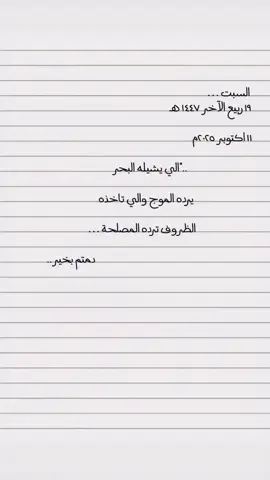 السبت ...
١٩ ربيع الآخر ١٤٤٧ هـ
١١ اكتوبر ٢٠٢٥م
.."الي يشيله البحر
يرده الموج والي تاخذه
الظروف ترده المصلحة ...
دمتم بخير ..